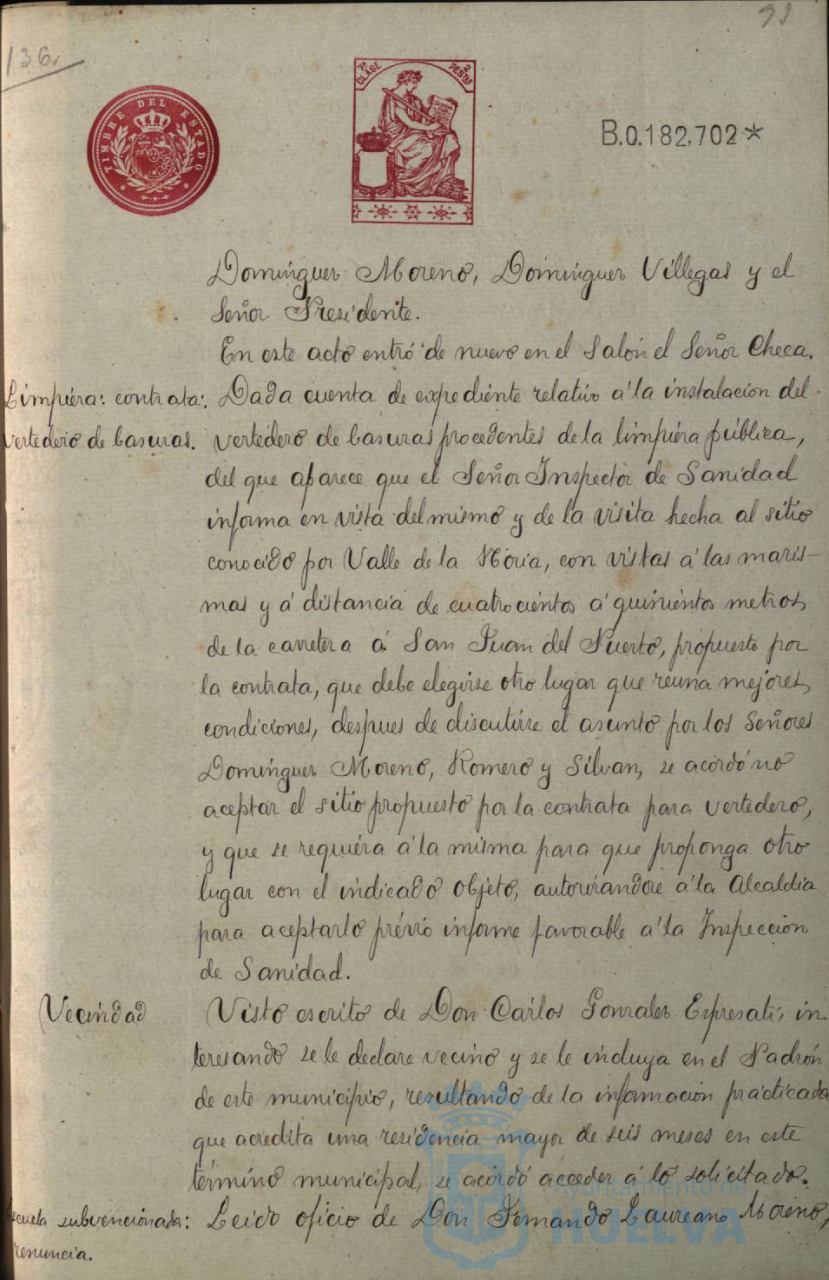 91
136.
TIMBRE DEL ESTADO
7ª CLASE 2 PESTAS
B.0.182,702*
Dominguez Moreno, Dominguez Villegas y el
Señor Presidente.
En este acto entró de nuevo en el Salon el Señor Checa.
Limpieza: contrata: Dada cuenta de expediente relativo á la instalacion del
vertedero de basuras. vertedero de basuras procedentes de la limpieza pública,
del que aparece que el Señor Inspector de Sanidad
informa en vista del mismo y de la visita hecha al sitio
conocido por Valle de la Noria, con vistas á las maris-
mas y á distancia de cuatrocientos á quinientos metros
de la carretera á San Juan del Puerto, propuesto por
la contrata, que debe elegirse otro lugar que reuna mejores
condiciones, despues de discutirse el asunto por los Señores
Dominguez Moreno, Romero y Silvan, se acordó no
aceptar el sitio propuesto por la contrata para vertedero,
y que se requiera á la misma para que proponga otro
lugar con el indicado objeto, autorizandose á la Alcaldia
para aceptarlo prévio informe favorable á la Inspeccion
de Sanidad.
Vecindad Visto escrito de Don Carlos Gonzalez Espresati, in
teresando se le declare vecino y se le incluya en el Padrón
de este municipio, resultando de la información practicada
que acredita una residencia mayor de seis meses en este
término municipal, se acordó acceder á lo solicitado.
Escuela subvencionada: Leido oficio de Don Fernando Laureano Moreno,
renuncia.
Ayuntamiento de
HUELVA